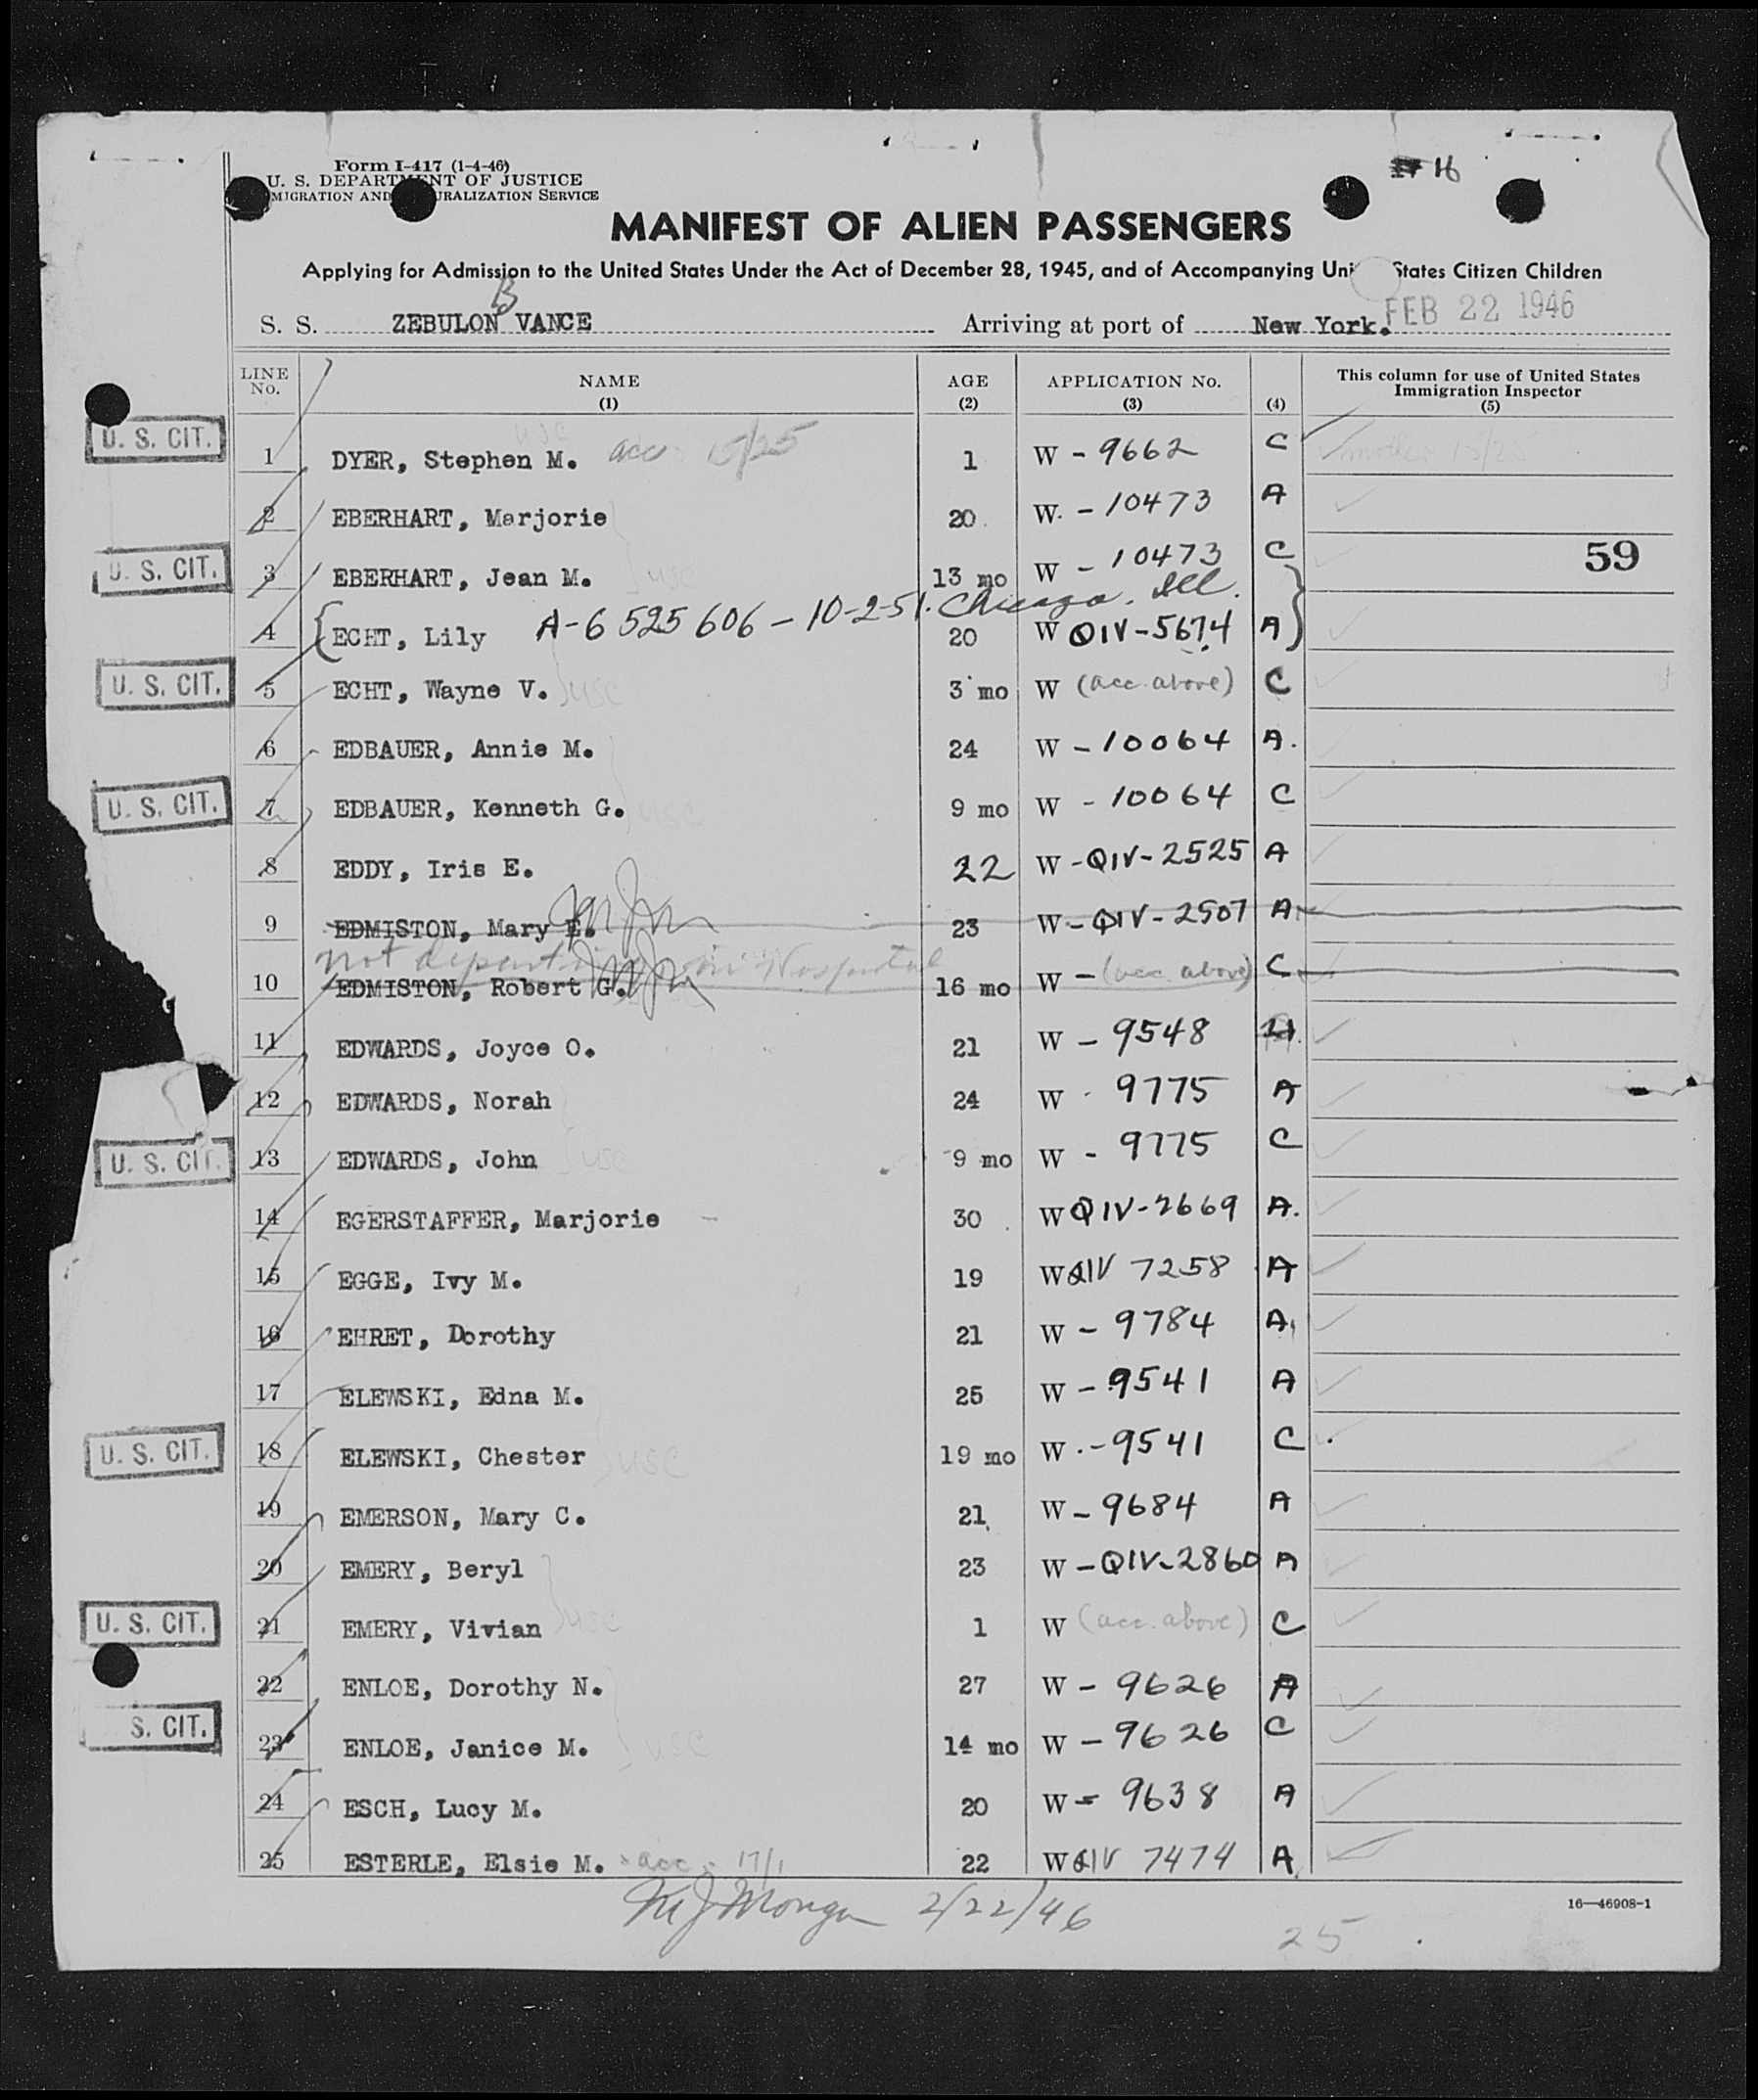 16
Form I-417 (1-4-46)
U. S. DEPARTMENT OF JUSTICE
IMMIGRATION AND NATURALIZATION SERVICE
MANIFEST OF ALIEN PASSENGERS
Applying for Admission to the United States Under the Act of December 28, 1945, and of Accompanying United States Citizen Children
S. S. ZEBULON B VANCE Arriving at port of New York. FEB 22 1946
LINE No. NAME (1) AGE (2) APPLICATION No. (3) (4) This column for use of United States Immigration Inspector (5)
U. S. CIT. 1 DYER, Stephen M. acc 15/25 usc 1 W - 9662 C mother 15/25
2 EBERHART, Marjorie 20 W - 10473 A
U. S. CIT. 3 EBERHART, Jean M. usc 13 mo W - 10473 C 59
A-6 525 606 - 10-2-51. Chicago. Ill.
4 ECHT, Lily 20 W QIV-5674 A
U. S. CIT. 5 ECHT, Wayne V. usc 3 mo W (acc. above) C
6 EDBAUER, Annie M. 24 W - 10064 A.
U. S. CIT. 7 EDBAUER, Kenneth G. usc 9 mo W - 10064 C
8 EDDY, Iris E. 22 W - QIV - 2525 A
9 EDMISTON, Mary E. 23 W - QIV - 2507 A
not departing in Hospital
10 EDMISTON, Robert G. 16 mo W - (acc above) C
11 EDWARDS, Joyce O. 21 W - 9548
12 EDWARDS, Norah 24 W - 9775 A
U. S. CIT. 13 EDWARDS, John usc 9 mo W - 9775 C
14 EGERSTAFFER, Marjorie 30 W QIV-2669 A.
15 EGGE, Ivy M. 19 W QIV 7258 A
16 EHRET, Dorothy 21 W - 9784 A
17 ELEWSKI, Edna M. 25 W - 9541 A
U. S. CIT. 18 ELEWSKI, Chester usc 19 mo W - 9541 C
19 EMERSON, Mary C. 21 W - 9684 A
20 EMERY, Beryl 23 W - QIV-2860 A
U. S. CIT. 21 EMERY, Vivian usc 1 W (acc. above) C
22 ENLOE, Dorothy N. 27 W - 9626 A
S. CIT. 23 ENLOE, Janice M. usc 14 mo W - 9626 C
24 ESCH, Lucy M. 20 W - 9638 A
25 ESTERLE, Elsie M. acc - 17/1 22 W QIV 7474 A
2/22/46
16—46908-1
25